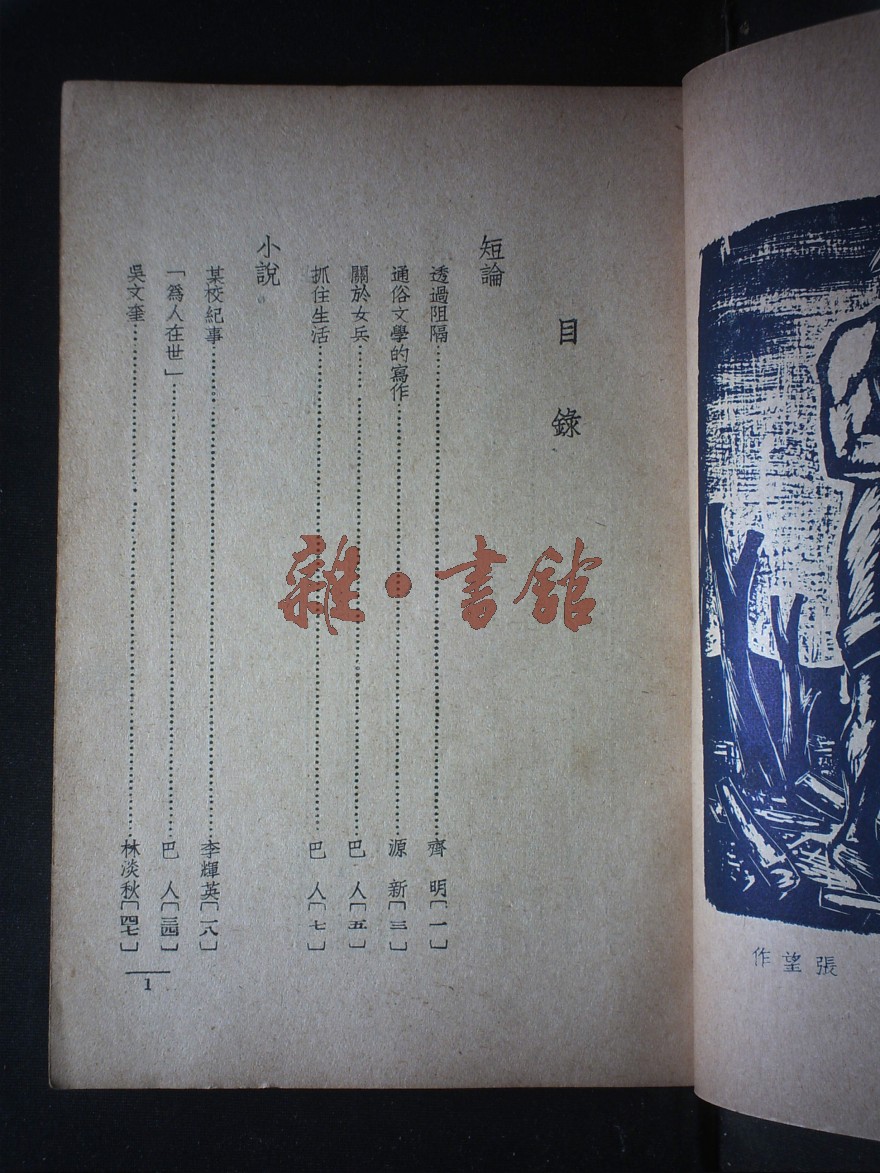 目錄
短論
透過阻隔……齊明〔一〕
通俗文學的寫作……源新〔三〕
關於女兵……巴人〔五〕
抓住生活……巴人〔七〕
小說
某校紀事……李輝英〔一八〕
「爲人在世」……巴人〔三四〕
吳文奎……林淡秋〔四七〕
1
張望作
雜·書館